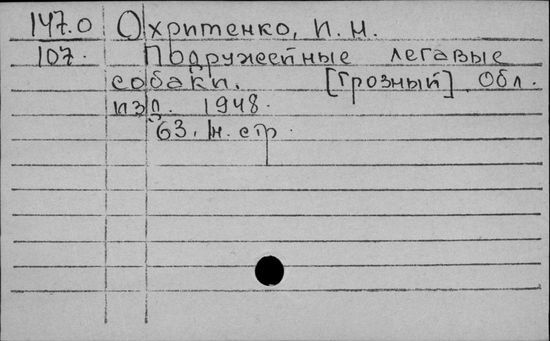 147.0 Охритенко, И. Н.
107. Подружейные легавые
собаки. [Грозный] Обл.
изд. 1948.
63. н. стр.